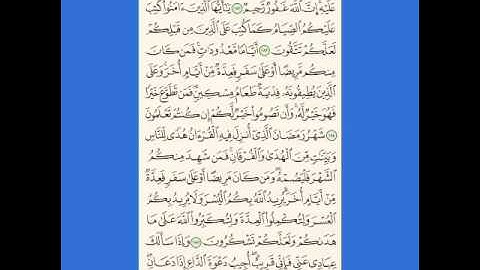 عَلَيْهِ إِنَّ ٱللَّهَ غَفُورٌ رَّحِيمٌ ١٨٢ يَٰٓأَيُّهَا ٱلَّذِينَ ءَامَنُوا۟ كُتِبَ
عَلَيْكُمُ ٱلصِّيَامُ كَمَا كُتِبَ عَلَى ٱلَّذِينَ مِن قَبْلِكُمْ
لَعَلَّكُمْ تَتَّقُونَ ١٨٣ أَيَّامًا مَّعْدُودَٰتٍ فَمَن كَانَ
مِنكُم مَّرِيضًا أَوْ عَلَىٰ سَفَرٍ فَعِدَّةٌ مِّنْ أَيَّامٍ أُخَرَ وَعَلَى
ٱلَّذِينَ يُطِيقُونَهُۥ فِدْيَةٌ طَعَامُ مِسْكِينٍ فَمَن تَطَوَّعَ خَيْرًا
فَهُوَ خَيْرٌ لَّهُۥ وَأَن تَصُومُوا۟ خَيْرٌ لَّكُمْ إِن كُنتُمْ تَعْلَمُونَ
١٨٤ شَهْرُ رَمَضَانَ ٱلَّذِىٓ أُنزِلَ فِيهِ ٱلْقُرْءَانُ هُدًى لِّلنَّاسِ
وَبَيِّنَٰتٍ مِّنَ ٱلْهُدَىٰ وَٱلْفُرْقَانِ فَمَن شَهِدَ مِنكُمُ
ٱلشَّهْرَ فَلْيَصُمْهُ وَمَن كَانَ مَرِيضًا أَوْ عَلَىٰ سَفَرٍ فَعِدَّةٌ
مِّنْ أَيَّامٍ أُخَرَ يُرِيدُ ٱللَّهُ بِكُمُ ٱلْيُسْرَ وَلَا يُرِيدُ بِكُمُ
ٱلْعُسْرَ وَلِتُكْمِلُوا۟ ٱلْعِدَّةَ وَلِتُكَبِّرُوا۟ ٱللَّهَ عَلَىٰ مَا
هَدَىٰكُمْ وَلَعَلَّكُمْ تَشْكُرُونَ ١٨٥ وَإِذَا سَأَلَكَ
عِبَادِى عَنِّى فَإِنِّى قَرِيبٌ أُجِيبُ دَعْوَةَ ٱلدَّاعِ إِذَا دَعَانِ